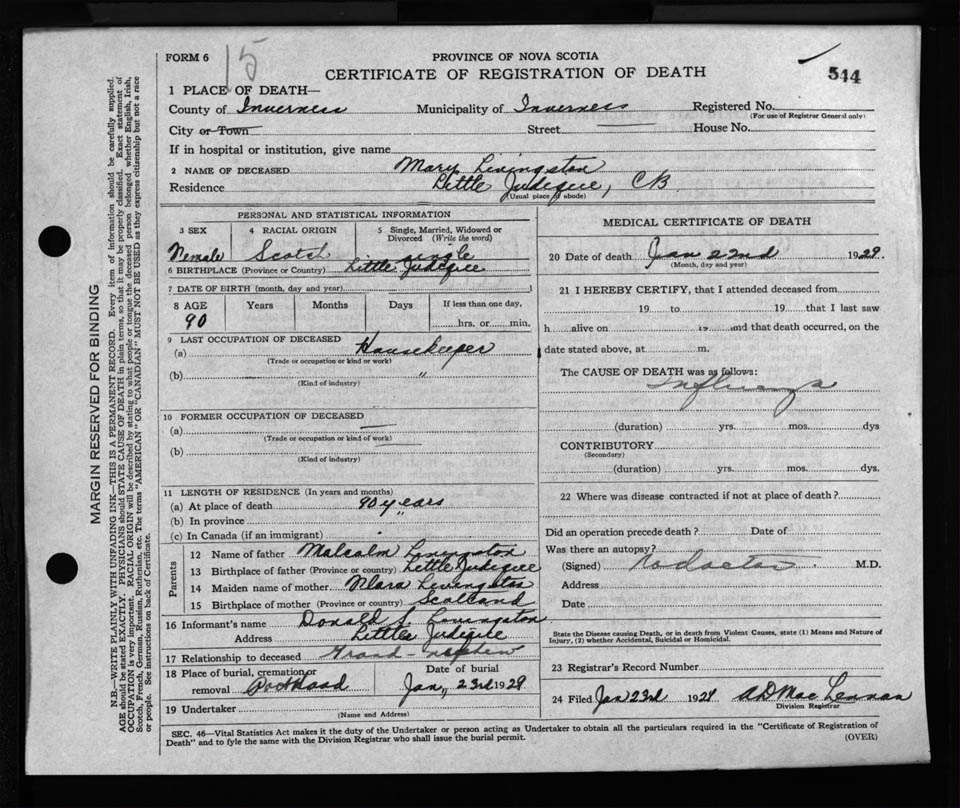 FORM 6
15
PROVINCE OF NOVA SCOTIA
CERTIFICATE OF REGISTRATION OF DEATH
544
1 PLACE OF DEATH—
County of Inverness Municipality of Inverness Registered No.
(For use of Registrar General only)
City or Town Street House No.
If in hospital or institution, give name
2 NAME OF DECEASED Mary Livingston
Residence Little Judique, CB
(Usual place of abode)
PERSONAL AND STATISTICAL INFORMATION
3 SEX 4 RACIAL ORIGIN 5 Single, Married, Widowed or Divorced (Write the word)
Female Scotch single
6 BIRTHPLACE (Province or Country) Little Judique
7 DATE OF BIRTH (month, day and year)
8 AGE Years Months Days If less than one day,
90 hrs. or min.
9 LAST OCCUPATION OF DECEASED
(a) Housekeeper
(Trade or occupation or kind or work)
(b) "
(Kind of industry)
10 FORMER OCCUPATION OF DECEASED
(a)
(Trade or occupation or kind of work)
(b)
(Kind of industry)
11 LENGTH OF RESIDENCE (In years and months)
(a) At place of death 90 years
(b) In province "
(c) In Canada (if an immigrant)
Parents
12 Name of father Malcolm Livingston
13 Birthplace of father (Province or country) Little Judique
14 Maiden name of mother Livingston
15 Birthplace of mother (Province or country) Scotland
16 Informant's name Donald S. Livingston
Address Little Judique
17 Relationship to deceased Grand-nephew
18 Place of burial, cremation or removal Port Hood Date of burial Jan, 23rd 1929
19 Undertaker
(Name and Address)
MEDICAL CERTIFICATE OF DEATH
20 Date of death Jan 22nd 1929.
(Month, day and year)
21 I HEREBY CERTIFY, that I attended deceased from
19 to 19 that I last saw
h alive on 19 and that death occurred, on the
date stated above, at m.
The CAUSE OF DEATH was as follows:
Influenza
(duration) yrs. mos. dys
CONTRIBUTORY
(Secondary)
(duration) yrs. mos. dys.
22 Where was disease contracted if not at place of death?
Did an operation precede death? Date of
Was there an autopsy?
(Signed) No doctor. M.D.
Address
Date
State the Disease causing Death, or in death from Violent Causes, state (1) Means and Nature of
Injury, (2) whether Accidental, Suicidal or Homicidal.
23 Registrar's Record Number
24 Filed Jan 23rd 1929 A D Mac Lennan
Division Registrar
SEC. 46—Vital Statistics Act makes it the duty of the Undertaker or person acting as Undertaker to obtain all the particulars required in the "Certificate of Registration of
Death" and to fyle the same with the Division Registrar who shall issue the burial permit.
(OVER)
MARGIN RESERVED FOR BINDING
N.B.—WRITE PLAINLY WITH UNFADING INK—THIS IS A PERMANENT RECORD. Every item of information should be carefully supplied.
AGE should be stated EXACTLY. PHYSICIANS should STATE CAUSE OF DEATH in plain terms, so that it may be properly classified. Exact statement of
OCCUPATION is very important. RACIAL ORIGIN will be described by stating to what people or tongue the deceased person belonged whether English, Irish,
Scotch, French, German, Russian, Ruthenian, etc. The terms "AMERICAN" OR "CANADIAN" MUST NOT BE USED as they express citizenship but not a race
or people. See instructions on back of Certificate.